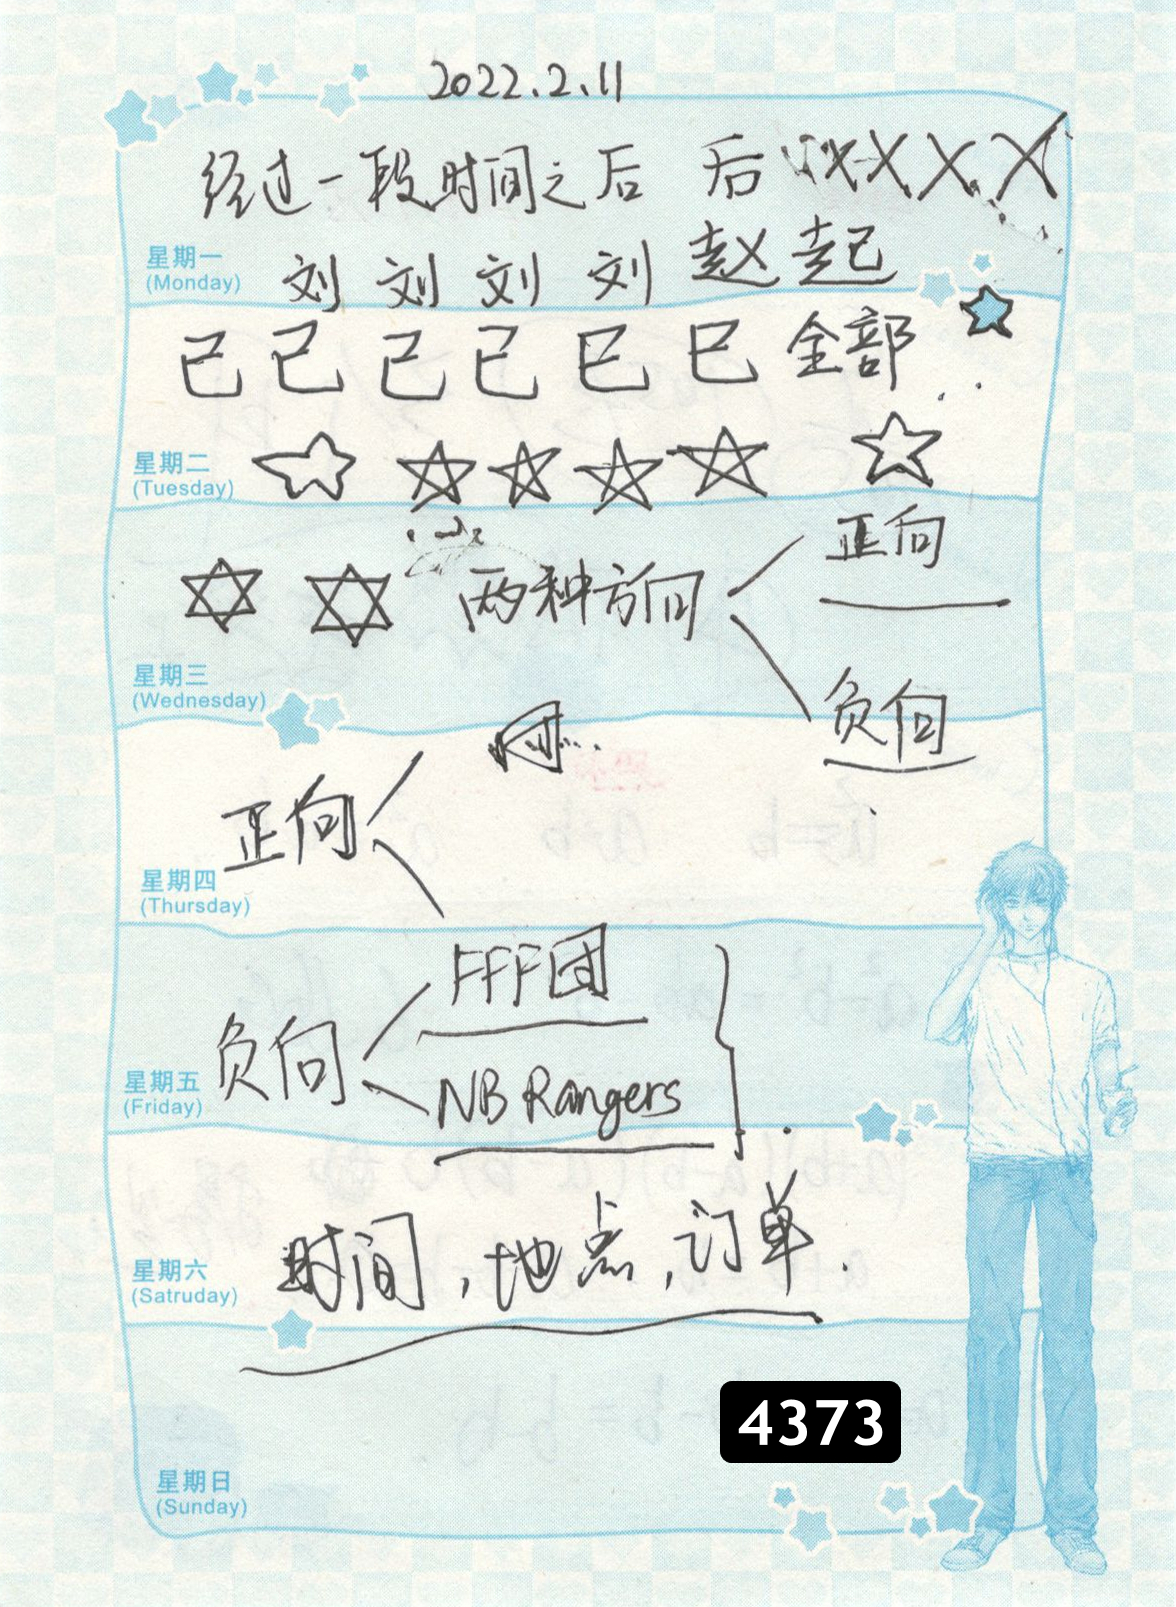 2022.2.11
经过一段时间之后 后 XXXX
星期一
(Monday)
刘 刘 刘 刘 赵 起
己 己 己 己 巳 巳 全部
星期二
(Tuesday)
两种方向
正向
负向
星期三
(Wednesday)
正向
星期四
(Thursday)
负向
FFF团
NB Rangers
星期五
(Friday)
时间,地点,订单.
星期六
(Satruday)
4373
星期日
(Sunday)